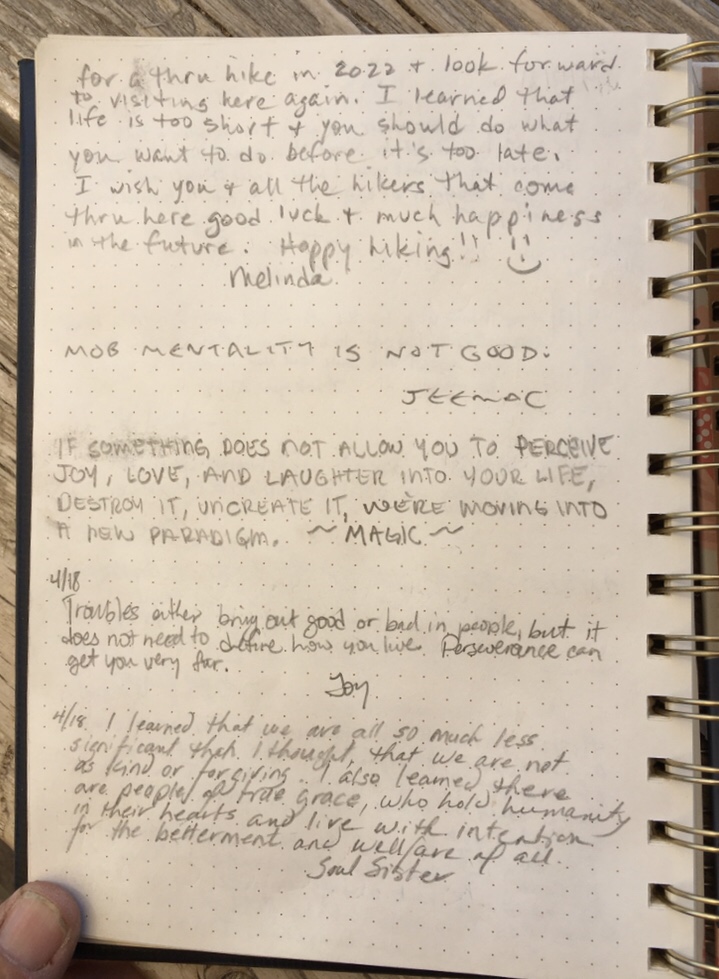 for a thru hike in 2022 + look forward
to visiting here again. I learned that
life is too short + you should do what
you want to do before it's too late.
I wish you + all the hikers that come
thru here good luck + much happiness
in the future. Happy hiking!!
Melinda
MOB MENTALITY IS NOT GOOD.
JEEMAC
IF SOMETHING DOES NOT ALLOW YOU TO PERCEIVE
JOY, LOVE, AND LAUGHTER INTO YOUR LIFE,
DESTROY IT, UNCREATE IT, WE'RE MOVING INTO
A NEW PARADIGM. ~ MAGIC ~
4/18
Troubles either bring out good or bad in people, but it
does not need to define how you live. Perseverance can
get you very far.
Joy
4/18 I learned that we are all so much less
significant than I thought, that we are not
as kind or forgiving. I also learned there
are people of true grace, who hold humanity
in their hearts and live with intention
for the betterment and welfare of all.
Soul Sister